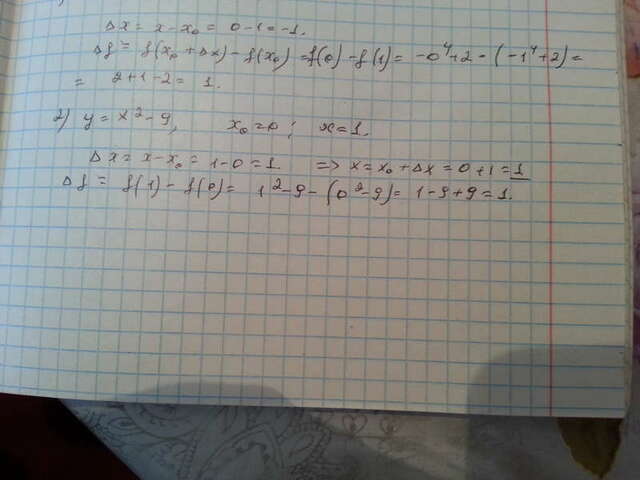 Δx = x - x₀ = 0 - 1 = -1.
Δf = f(x₀ + Δx) - f(x₀) = f(0) - f(1) = -0⁴ + 2 - (-1⁴ + 2) =
= 2 + 1 - 2 = 1.
2) y = x² - 9, x₀ = 0; x = 1.
Δx = x - x₀ = 1 - 0 = 1. => x = x₀ + Δx = 0 + 1 = 1
Δf = f(1) - f(0) = 1² - 9 - (0² - 9) = 1 - 9 + 9 = 1.